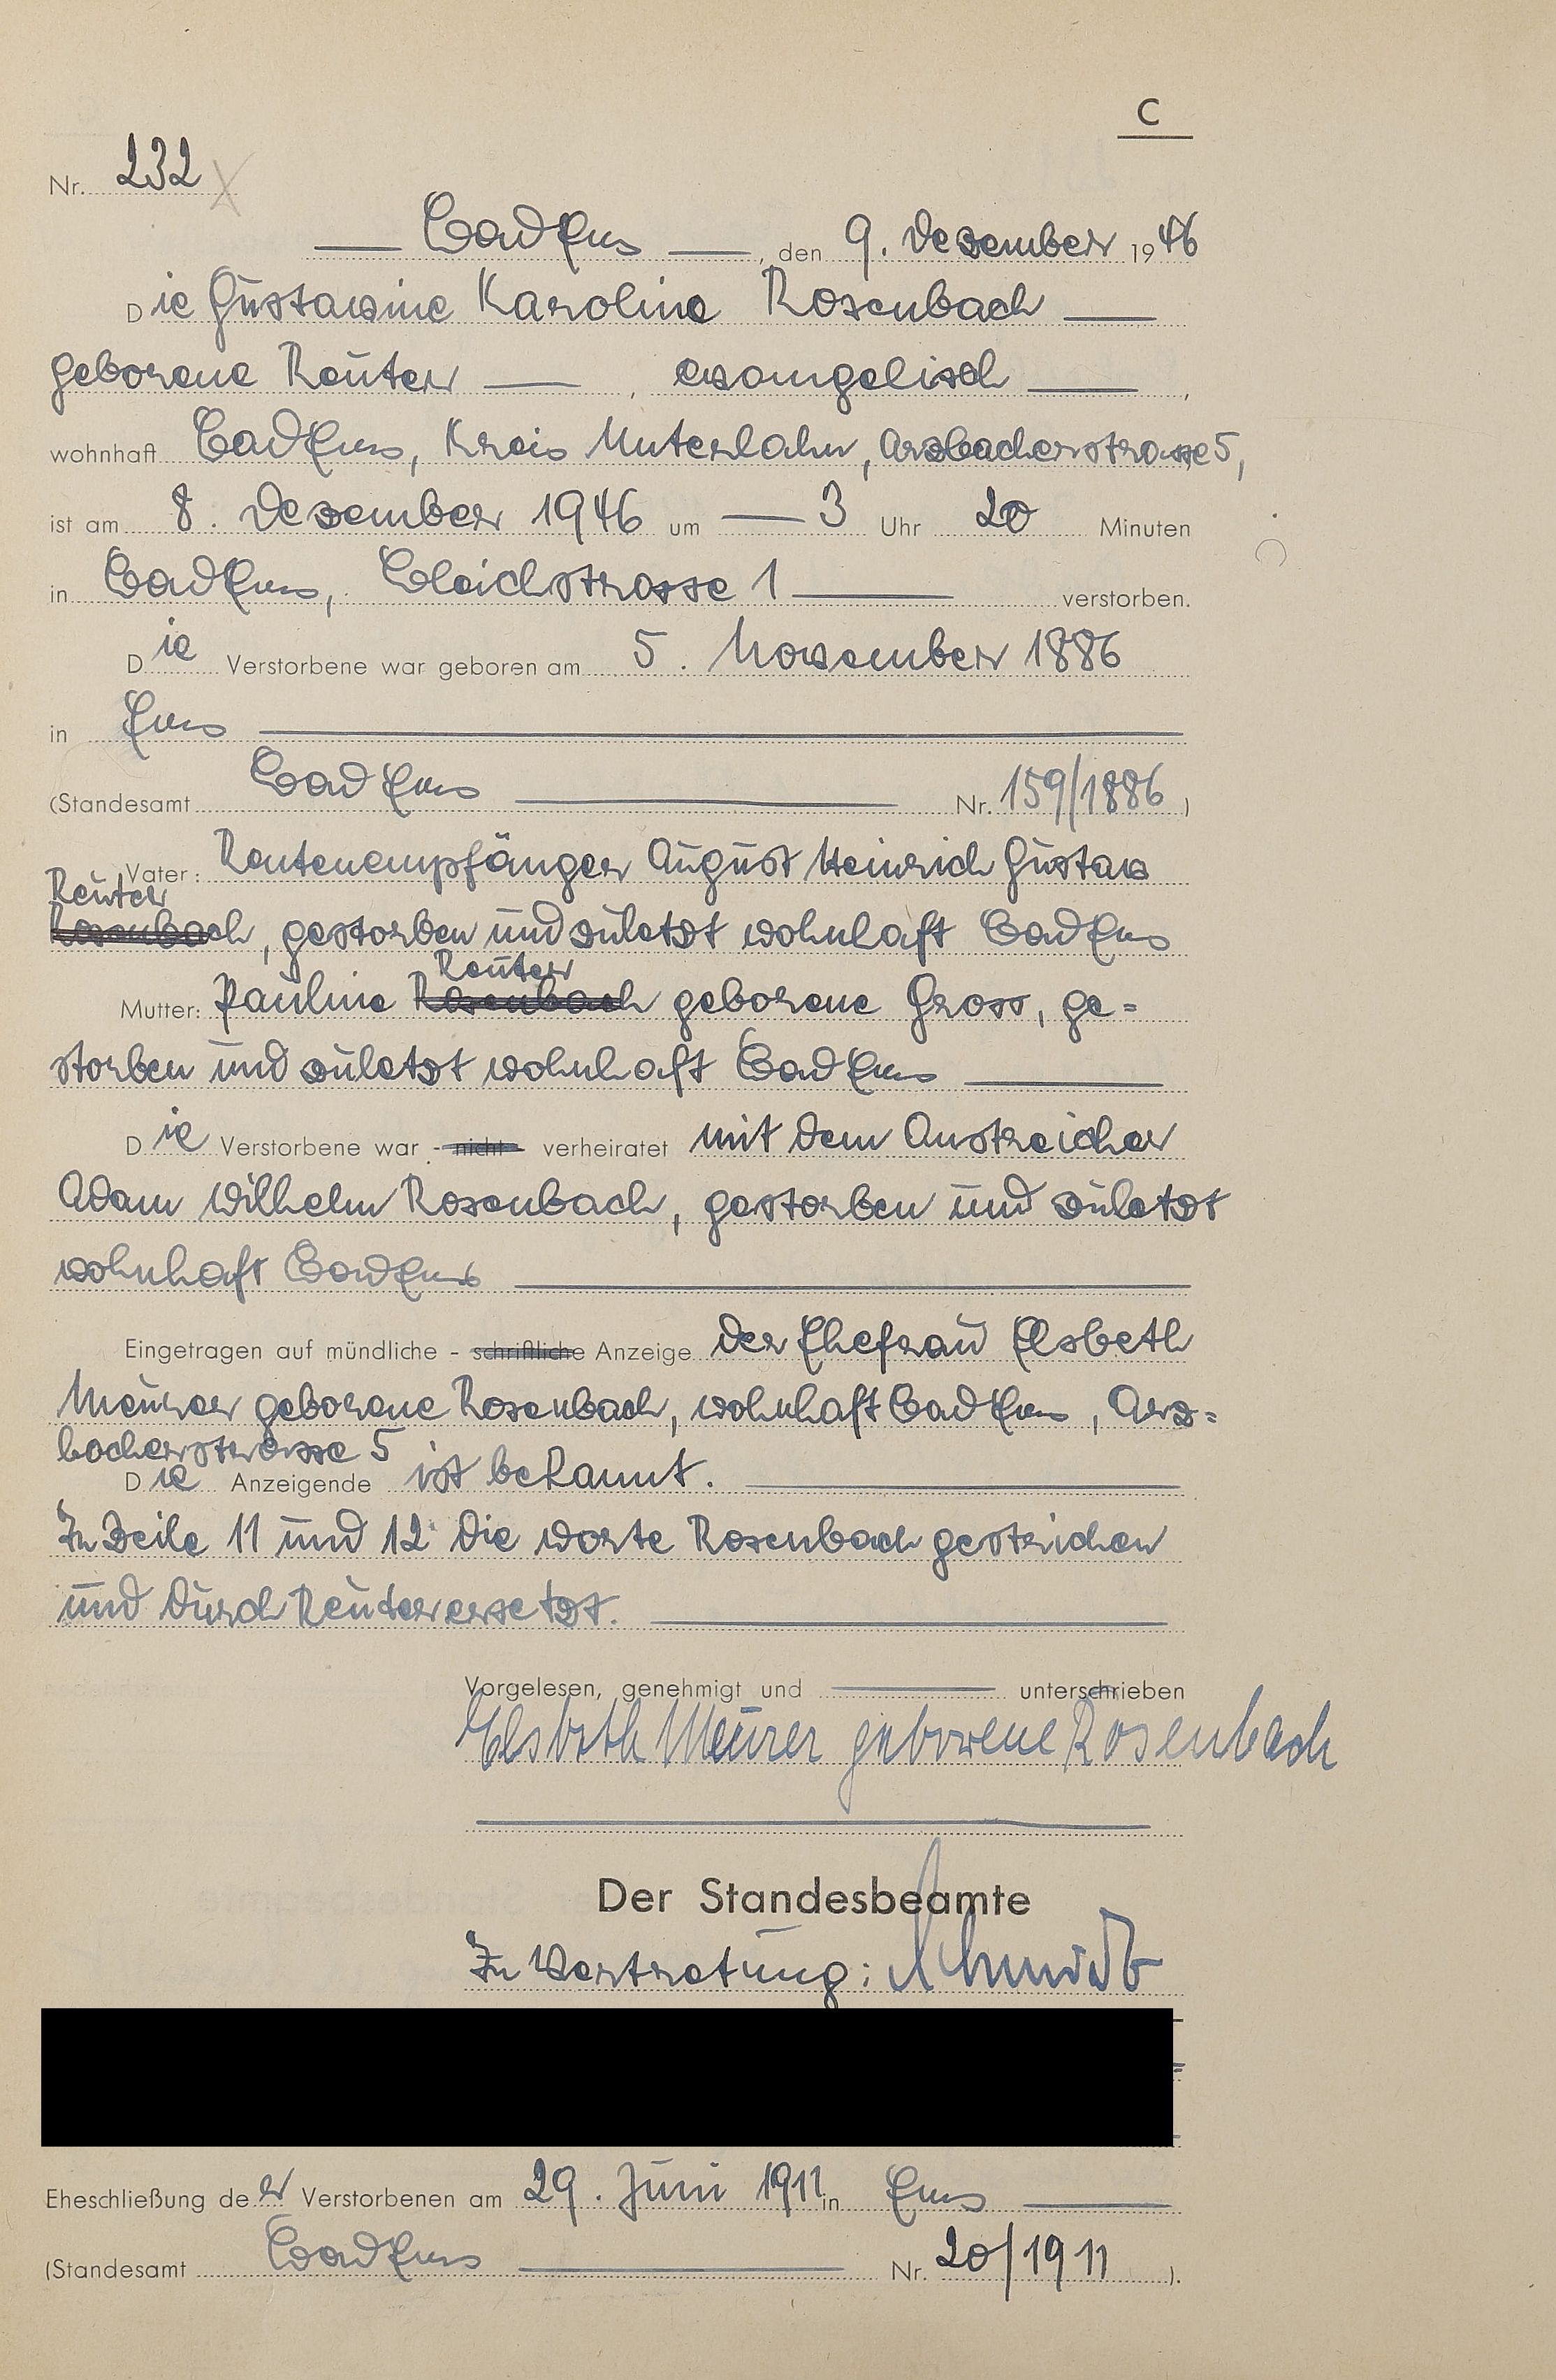 C
Nr. 232
Bad Ems, den 9. Dezember 1946
Die Gustavine Karoline Rosenbach
geborene Reuter, evangelisch,
wohnhaft Bad Ems, Kreis Unterlahn, Arzbacherstrasse 5,
ist am 8. Dezember 1946 um 3 Uhr 20 Minuten
in Bad Ems, Bleichstrasse 1 verstorben.
Die Verstorbene war geboren am 5. November 1886
in Ems
(Standesamt Bad Ems Nr. 159/1886)
Vater: Rentenempfänger August Heinrich Gustav
Reuter
Rosenbach, gestorben und zuletzt wohnhaft Bad Ems
Reuter
Mutter: Pauline Rosenbach geborene Gross, ge=
storben und zuletzt wohnhaft Bad Ems
Die Verstorbene war - nicht verheiratet mit dem Anstreicher
Adam Wilhelm Rosenbach, gestorben und zuletzt
wohnhaft Bad Ems
Eingetragen auf mündliche - schriftliche Anzeige der Ehefrau Elsbeth
Meurer geborene Rosenbach, wohnhaft Bad Ems, Arz=
bacherstrasse 5
Die Anzeigende ist bekannt.
In Zeile 11 und 12 die Worte Rosenbach gestrichen
und durch Reuter ersetzt.
Vorgelesen, genehmigt und unterschrieben
Elsbeth Meurer geborene Rosenbach
Der Standesbeamte
In Vertretung: Schmidt
Eheschließung der Verstorbenen am 29. Juni 1911 in Ems
(Standesamt Bad Ems Nr. 20/1911).